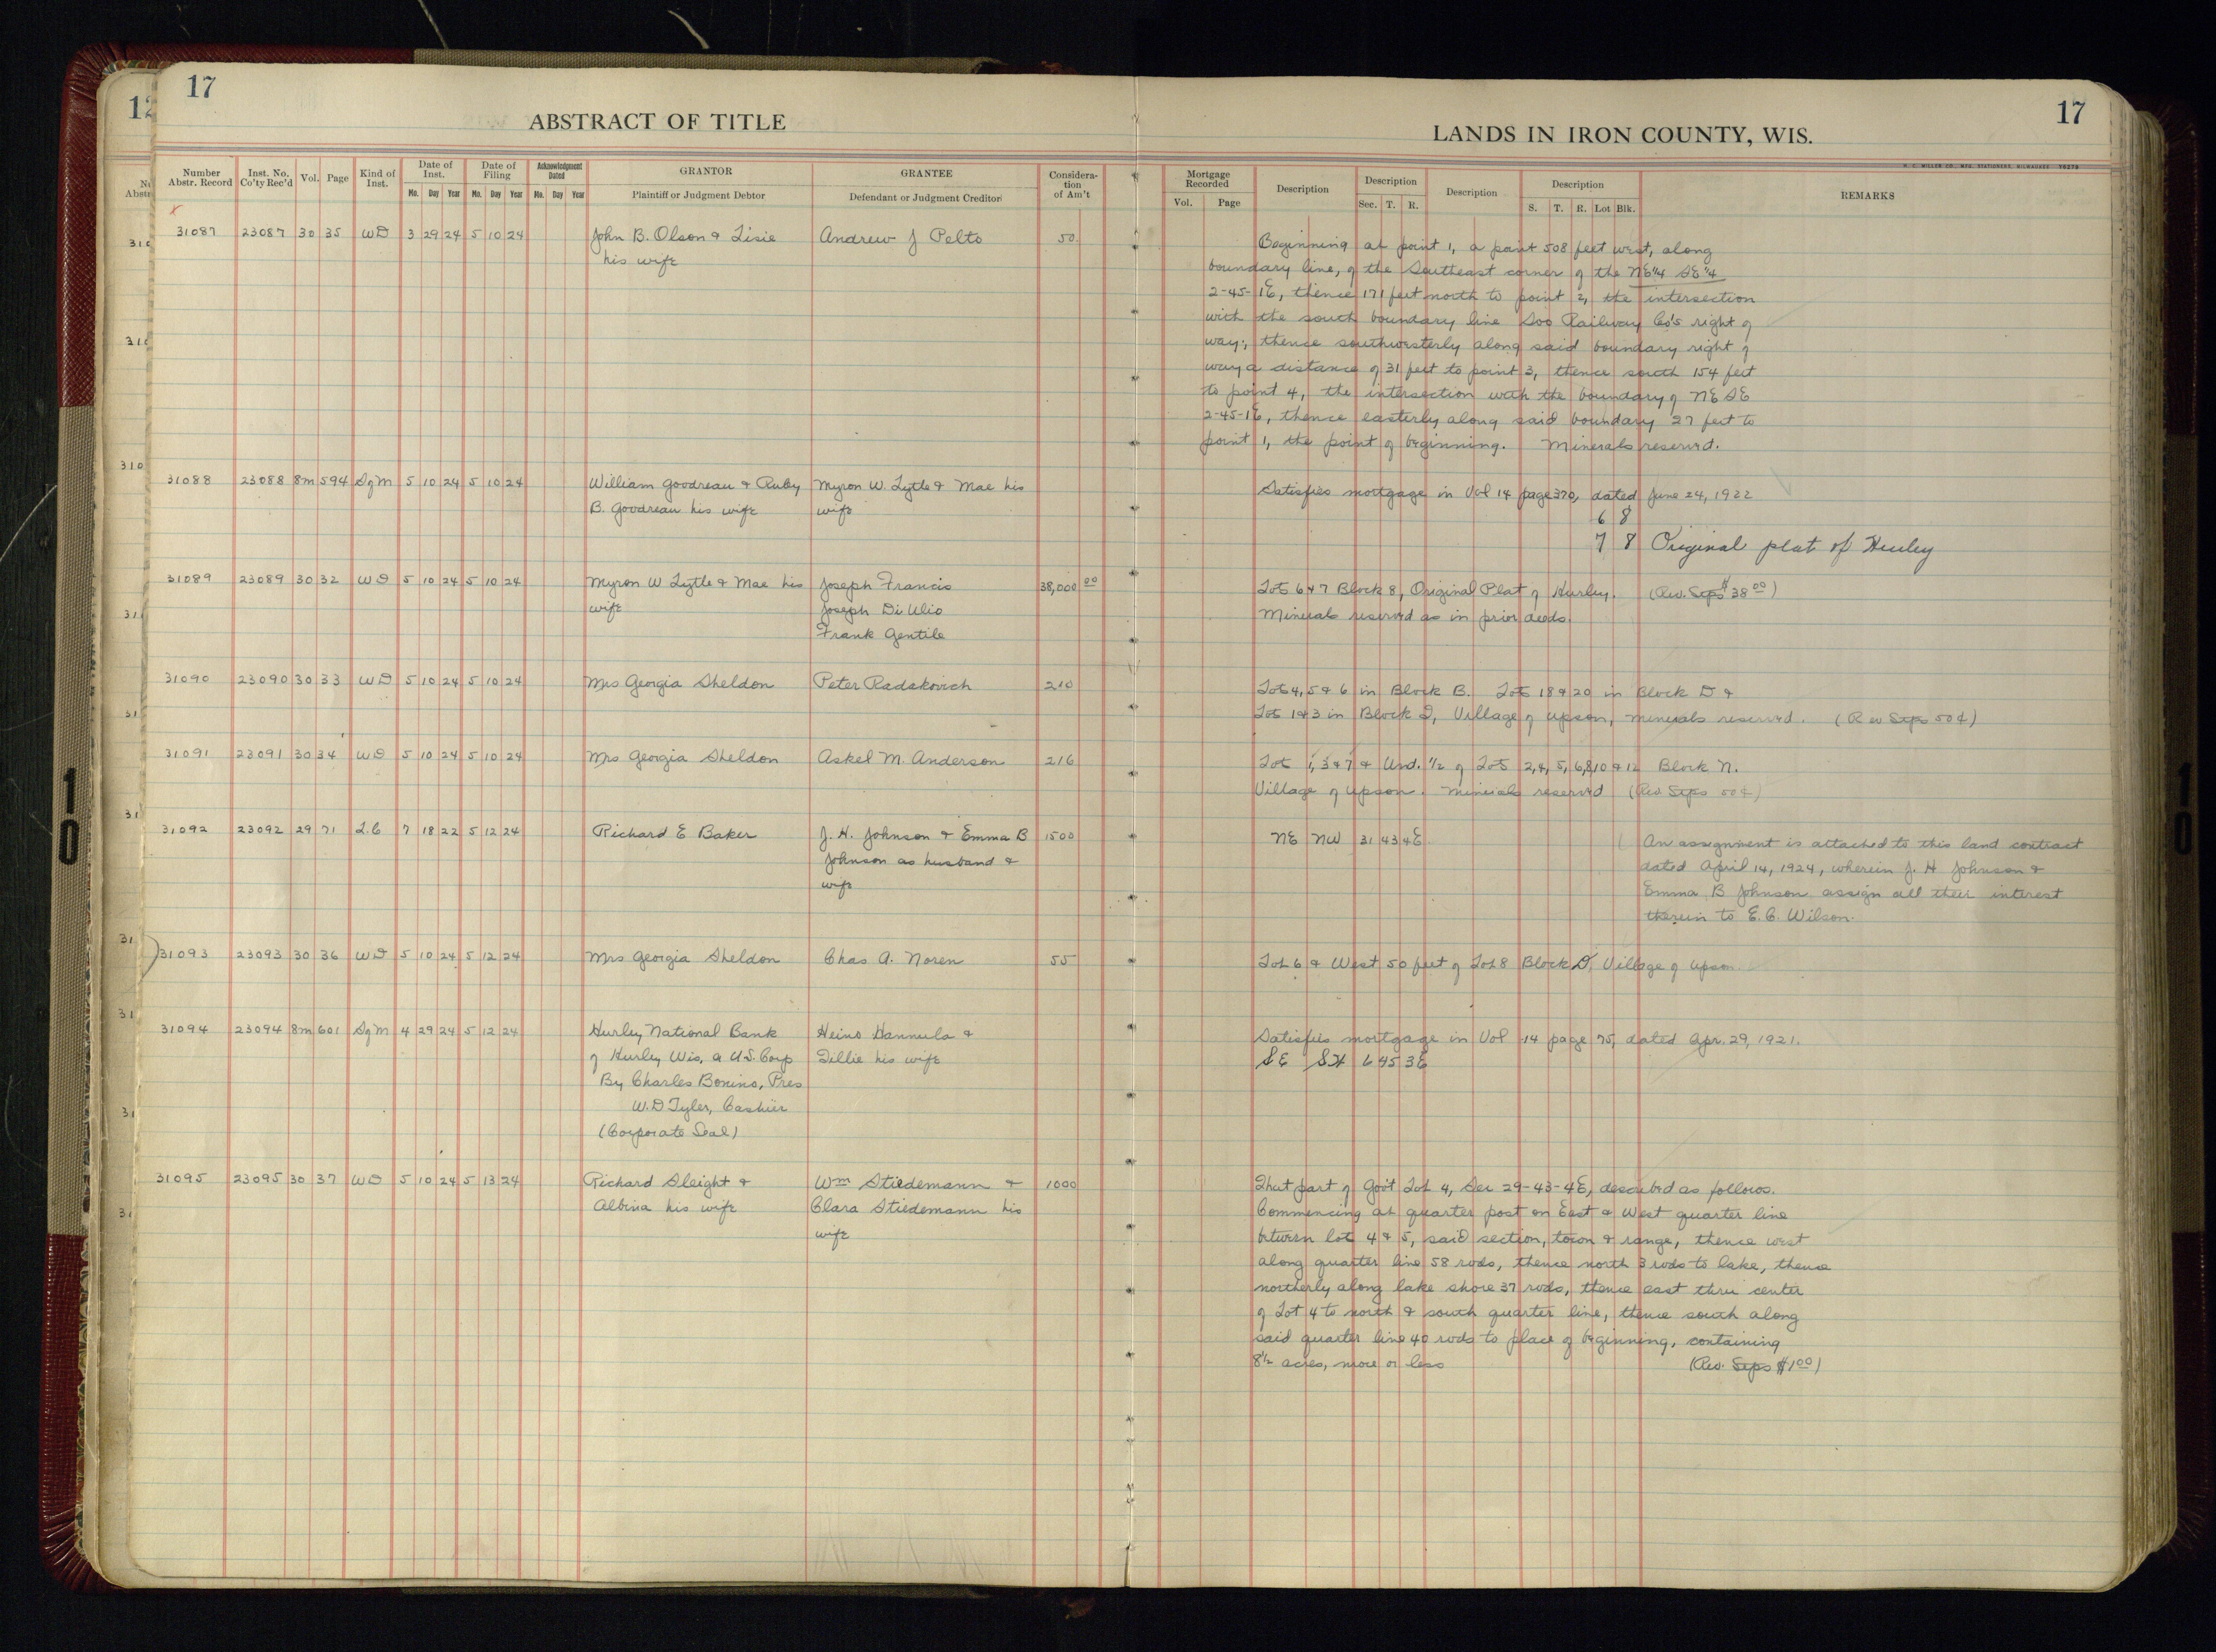 17
ABSTRACT OF TITLE
Number Abstr. Record Inst. No. Co'ty Rec'd Vol. Page Kind of Inst. Date of Inst. Mo. Day Year Date of Filing Mo. Day Year Acknowledgment Dated Mo. Day Year GRANTOR Plaintiff or Judgment Debtor GRANTEE Defendant or Judgment Creditor Considera-tion of Am't
31087 23087 30 35 WD 3 29 24 5 10 24 John B. Olson & Lisie Andrew J Pelto 50
his wife
31088 23088 8m 594 SgM 5 10 24 5 10 24 William Goodreau & Ruby Myron W. Lytle & Mae his
B. Goodreau his wife wife
31089 23089 30 32 WD 5 10 24 5 10 24 Myron W Lytle & Mae his Joseph Francis 38,000 00
wife Joseph Di Ulio
Frank Gentile
31090 23090 30 33 WD 5 10 24 5 10 24 Mrs Georgia Sheldon Peter Radakovich 210
31091 23091 30 34 WD 5 10 24 5 10 24 Mrs Georgia Sheldon Askel M. Anderson 216
31092 23092 29 71 L.C 7 18 22 5 12 24 Richard E Baker J. H. Johnson & Emma B 1500
Johnson as husband &
wife
31093 23093 30 36 WD 5 10 24 5 12 24 Mrs Georgia Sheldon Chas A. Noren 55
31094 23094 8m 601 SgM 4 29 24 5 12 24 Hurley National Bank Heino Hannula &
of Hurley Wis, a U.S. Corp Tillie his wife
By Charles Bonino, Pres
W.D Tyler, Cashier
(Corporate Seal)
31095 23095 30 37 WD 5 10 24 5 13 24 Richard Sleight & Wm Stiedemann & 1000
Albina his wife Clara Stiedemann his
wife
17
LANDS IN IRON COUNTY, WIS.
H. C. MILLER CO., MFG. STATIONERS, MILWAUKEE 76279
Mortgage Recorded Vol. Page Description Description Sec. T. R. Description Description S. T. R. Lot Blk. REMARKS
Beginning at point 1, a point 508 feet west, along
boundary line, of the Southeast corner of the NE 1/4 SE 1/4
2-45-1E, thence 171 feet north to point 2, the intersection
with the south boundary line Soo Railway Co's right of
way; thence southwesterly along said boundary right of
way a distance of 31 feet to point 3, thence south 154 feet
to point 4, the intersection with the boundary of NE SE
2-45-1E, thence easterly along said boundary 27 feet to
point 1, the point of beginning. Minerals reserved.
Satisfies mortgage in Vol 14 page 370, dated June 24, 1922
6 8
7 8 Original plat of Hurley
Lots 6 & 7 Block 8, Original Plat of Hurley. (Rev. Stps $38 00)
Minerals reserved as in prior deeds.
Lots 4, 5 & 6 in Block B. Lots 18 & 20 in Block D &
Lots 1 & 3 in Block I, Village of Upson, minerals reserved. (Rev Stps 50¢)
Lots 1, 3 & 7 & Und. 1/2 of Lots 2, 4, 5, 6, 8, 10 & 12 Block N.
Village of Upson. Minerals reserved (Rev Stps 50¢)
NE NW 31 43 4E An assignment is attached to this land contract
dated April 14, 1924, wherein J. H Johnson &
Emma B Johnson assign all their interest
therein to E. C. Wilson.
Lot 6 & West 50 feet of Lot 8 Block D, Village of Upson
Satisfies mortgage in Vol 14 page 75, dated Apr. 29, 1921.
SE SW 6 45 3E
That part of Gov't Lot 4, Sec 29-43-4E, described as follows.
Commencing at quarter post on East & West quarter line
between lots 4 & 5, said section, town & range, thence west
along quarter line 58 rods, thence north 3 rods to lake, thence
northerly along lake shore 37 rods, thence east thru center
of Lot 4 to north & south quarter line, thence south along
said quarter line 40 rods to place of beginning, containing
8 1/2 acres, more or less (Rev. Stps $1 00)
10